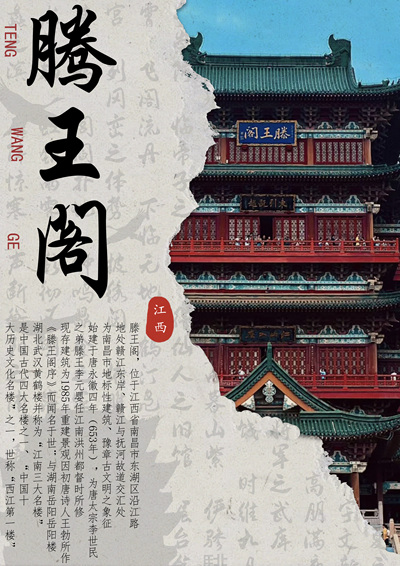 腾王阁
TENG
WANG
GE
滕王閣
江西
滕王阁，位于江西省南昌市东湖区沿江路
地处赣江东岸、赣江与抚河故道交汇处
为南昌市地标性建筑、豫章古文明之象征
始建于唐永徽四年（653年），为唐太宗李世民
之弟滕王李元婴任江南洪州都督时所修
现存建筑为1985年重建景观因初唐诗人王勃所作
《滕王阁序》而闻名于世"与湖南岳阳岳阳楼
湖北武汉黄鹤楼并称为"江南三大名楼"
是中国古代四大名楼之一、"中国十
大历史文化名楼"之一，世称"西江第一楼"